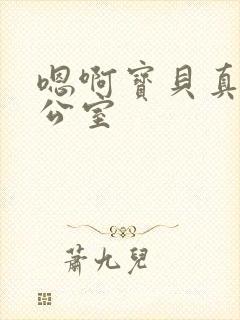 嗯啊寶貝真
公室
蕭九兒